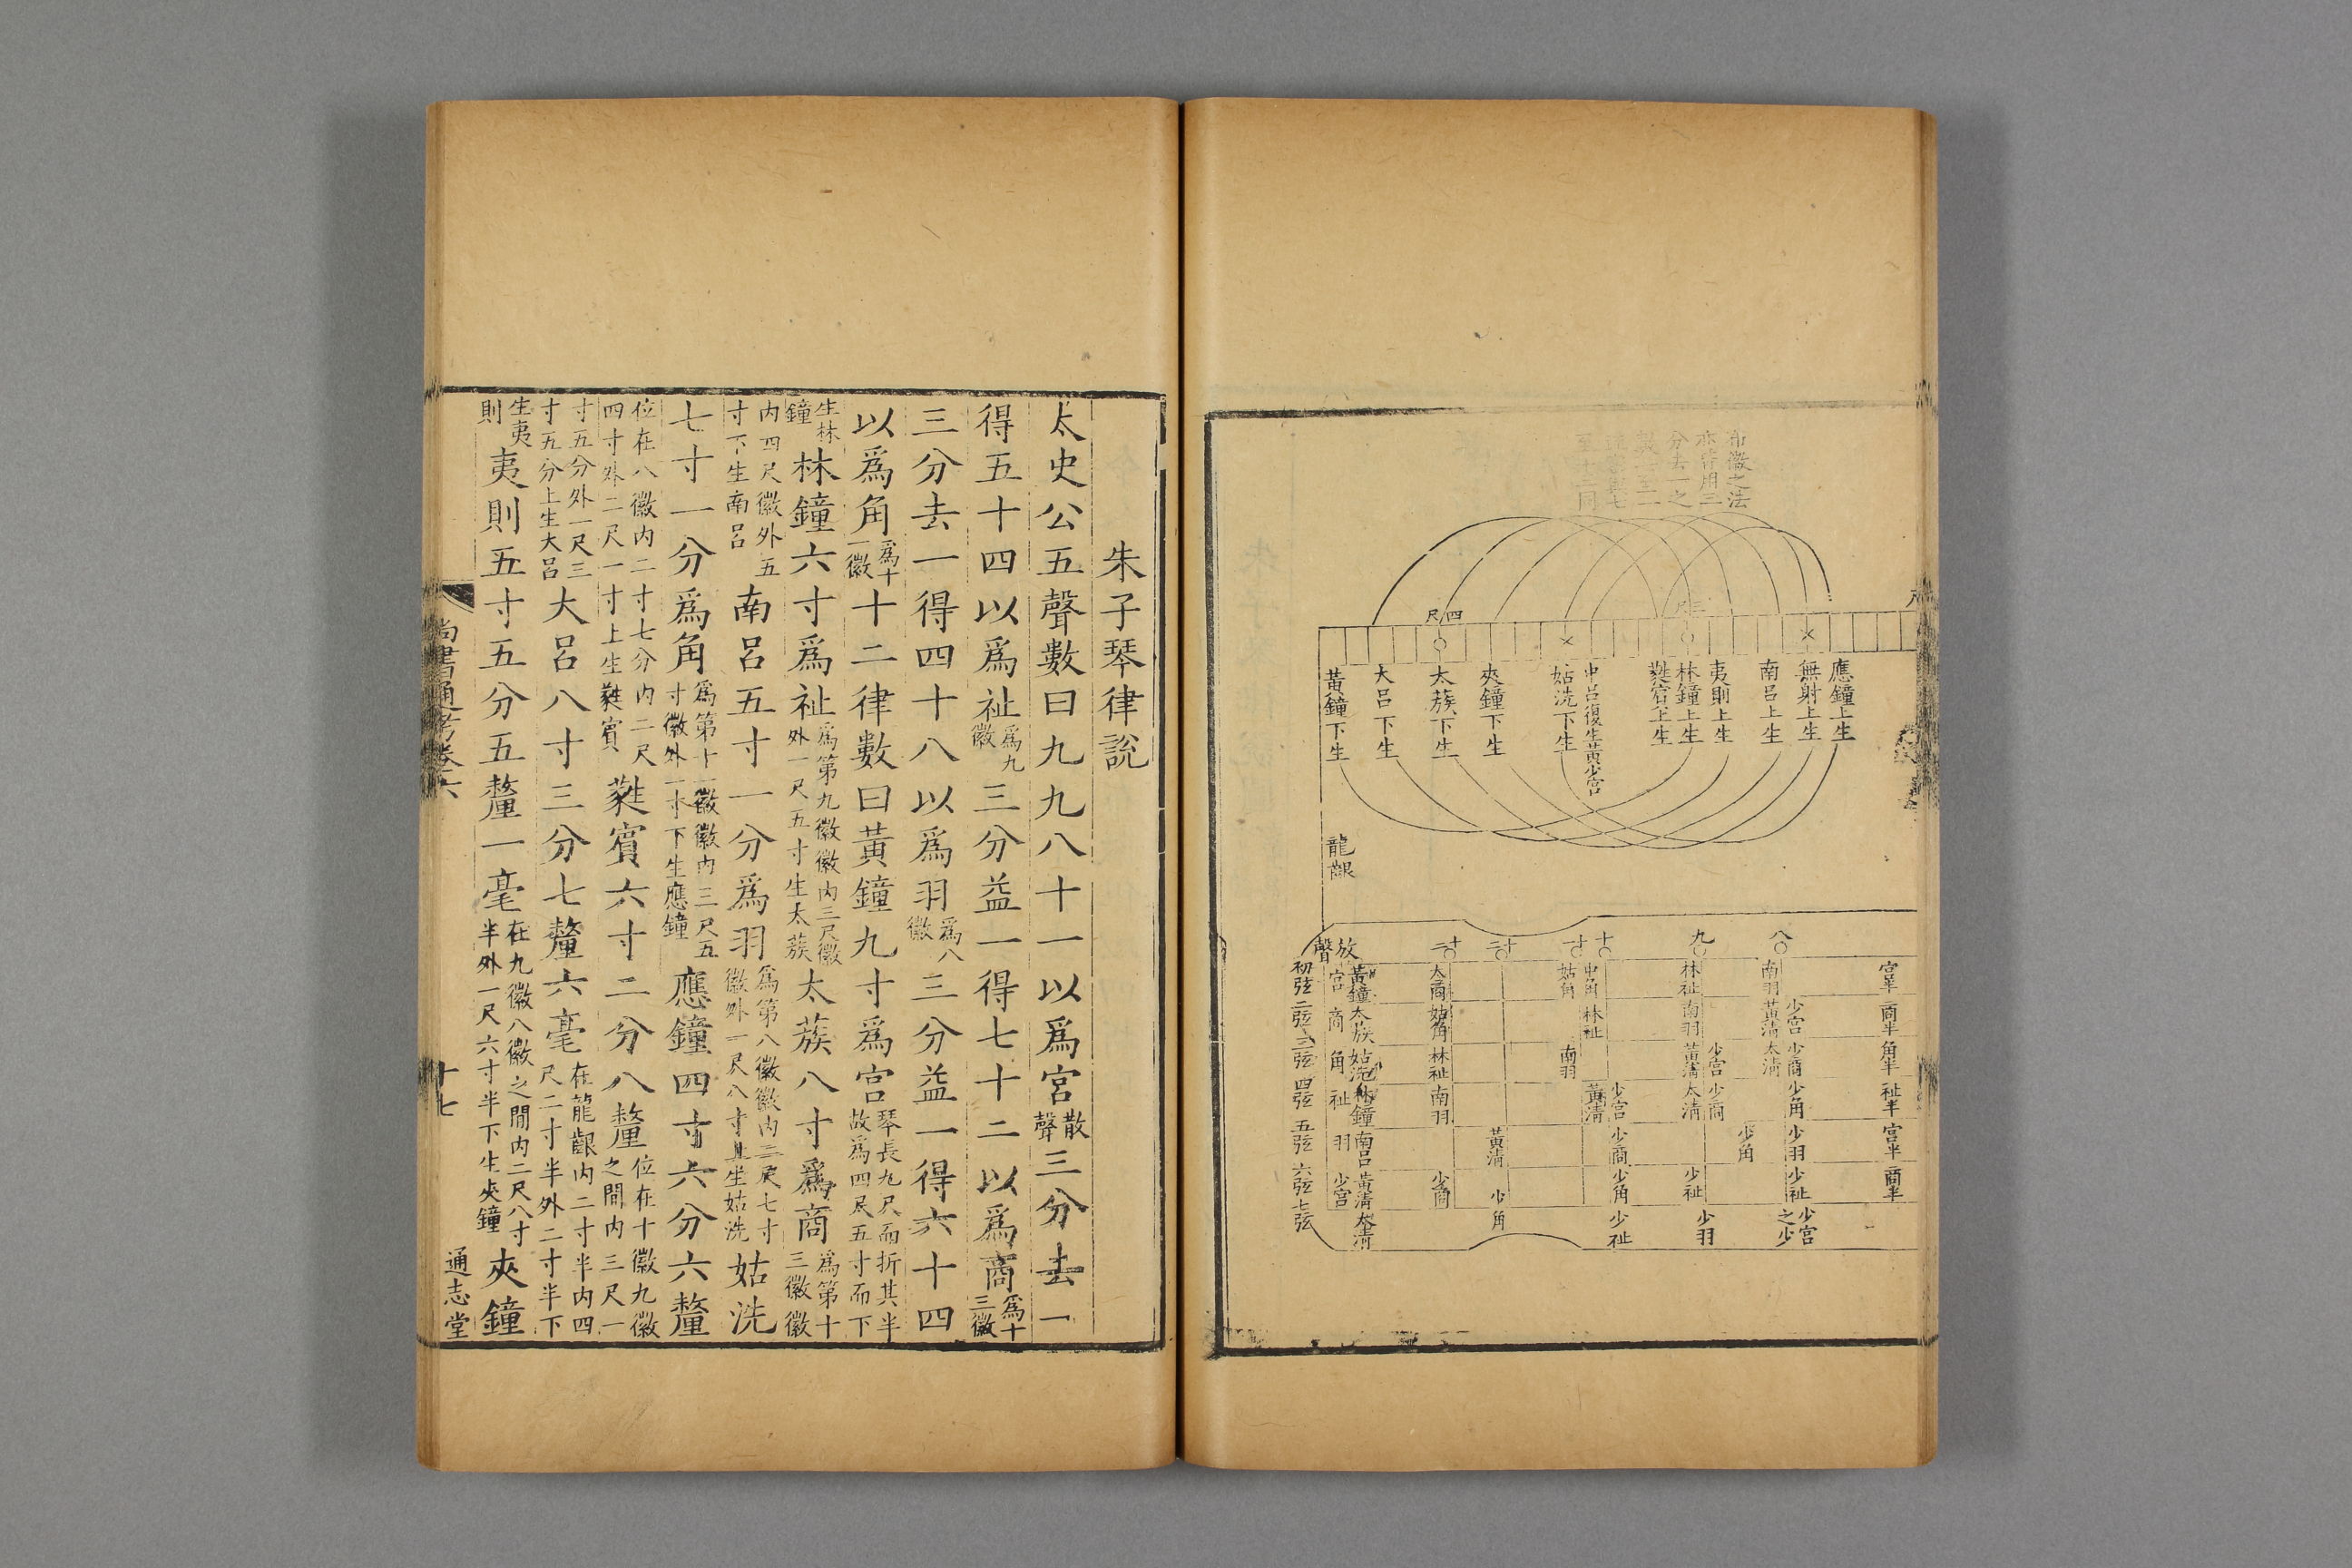 布徽之法
亦皆用三
分去一之
至七三同
四尺
三尺
應鐘上生
無射上生
南呂上生
夷則上生
林鐘上生
蕤賓上生
中呂復生黃少宮
姑洗下生
夾鐘下生
太蔟下生
大呂下生
黃鐘下生
龍齦
八
九
十
十一
十二
十三
放聲
宮半 商半 角半 祉半 宮半 商半
南羽 少宮 黃清 少商 太清 少角 少羽 少祉 少宮之少
林祉 南羽 少宮 黃清 少商 太清 少角 少祉 少羽
中角 姑角 林祉 南羽 少宮 黃清 少商 少角 少祉
黃清 少角
太商 姑角 林祉 南羽 少商
黃鐘 太族 姑洗 林鐘 南呂 黃清 太清
宮 商 角 祉 羽 少宮
初弦 二弦 三弦 四弦 五弦 六弦 七弦
朱子琴律說
太史公五聲數曰九九八十一以爲宮散聲三分去一
得五十四以爲祉爲九徽三分益一得七十二以爲商爲十三徽
三分去一得四十八以爲羽爲八徽三分益一得六十四
以爲角爲十一徽十二律數曰黃鐘九寸爲宮琴長九尺而折其半故爲四尺五寸而下
生林鐘林鐘六寸爲祉爲第九徽徽內三尺徽外一尺五寸生太蔟太蔟八寸爲商爲第十三徽徽
內四尺徽外五寸下生南呂南呂五寸一分爲羽爲第八徽徽內二尺七寸徽外一尺八寸上生姑洗姑洗
七寸一分爲角爲第十一徽徽內三尺五寸徽外一寸下生應鐘應鐘四寸六分六釐
位在八徽內二寸七分內二尺四寸外二尺一寸上生蕤賓蕤賓六寸二分八釐位在十徽九徽之間內三尺一
寸五分外一尺三寸五分上生大呂大呂八寸三分七釐六毫在龍齦內二寸半內四尺二寸半外二寸半下
生夷則夷則五寸五分五釐一毫在九徽八徽之間內二尺八寸半外一尺六寸半下生夾鐘夾鐘
尚書通考卷六
十七
通志堂